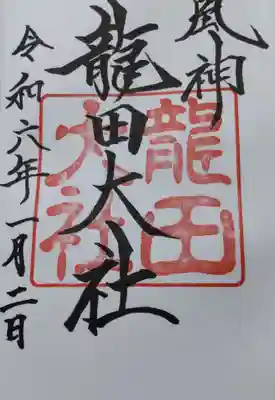 風神
龍田大社
龍田
大社
令和六年一月二日